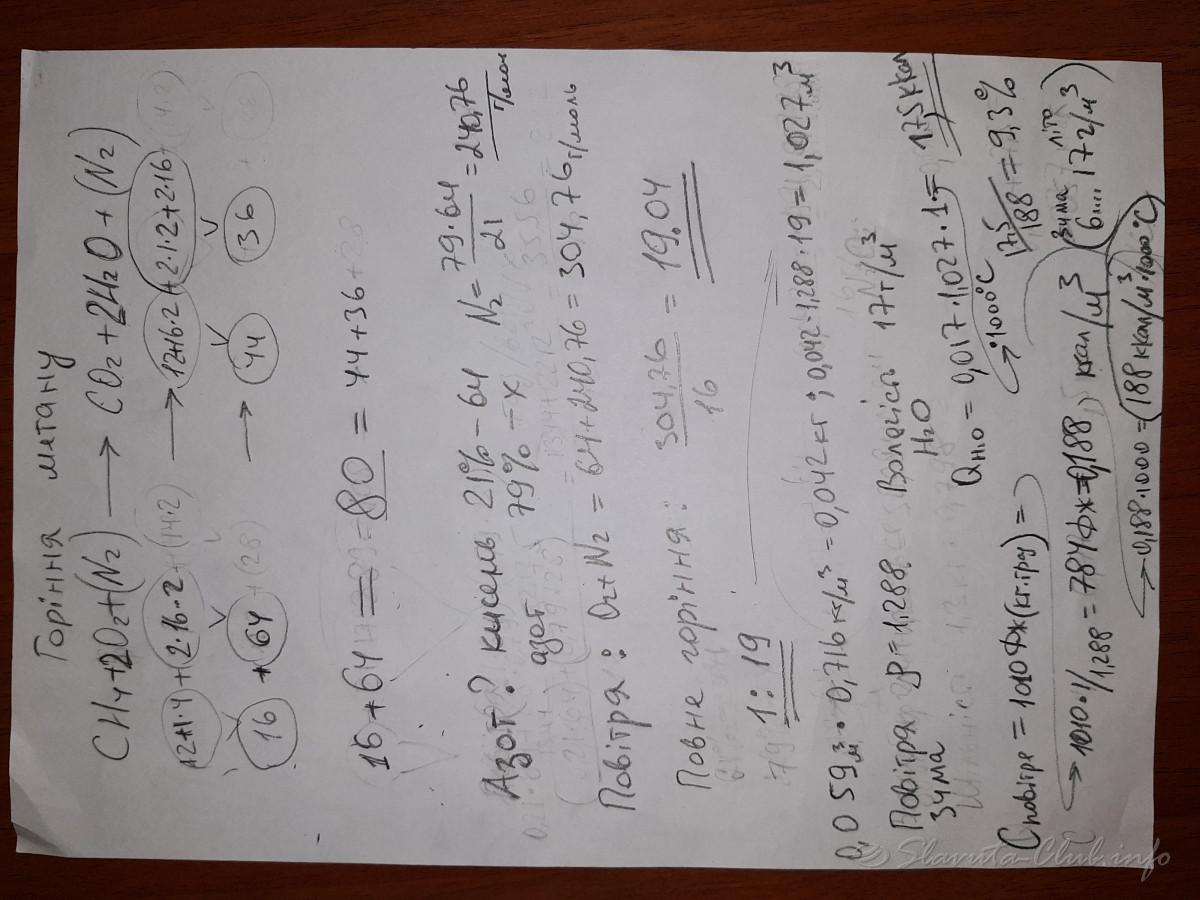 Горіння метану
CH4+2O2+(N2) → CO2+2H2O+(N2)
12+1·4 + 2·16·2 + (14·2) → 12+16·2 + 2·1·2+2·16 + (14·2)
16 + 64 + (28) → 44 136 +
16+64 = 80 = 44+36+28
Азот? кисень 21% – 64 N2 = 79·64/21 = 240,76 г/моль
азот 79% – x
Повітря: O2+N2 = 64+240,76 = 304,76 г/моль
Повне горіння: 304,76/16 = 19.04
1:19
0,059 м³ · 0,716 кг/м³ = 0,042 кг; 0,042·1,288·19 = 1,027 м³
Повітря ρ=1.288. Вологість 17 г/м³
зима H2O
Q H2O = 0,017·1,027·1 = 17,5 ккал
→ ·1000°C
17,5/188 = 9,3%
Cповітря = 1010 Дж(кг·град) =
(зима 6 .... літо 17 г/м³)
→ 1010·1/1,288 = 784 Дж = 0,188 ккал/м³
→ 0,188·1000 = (188 ккал/м³·1000°C)
Slavuta-Club.info